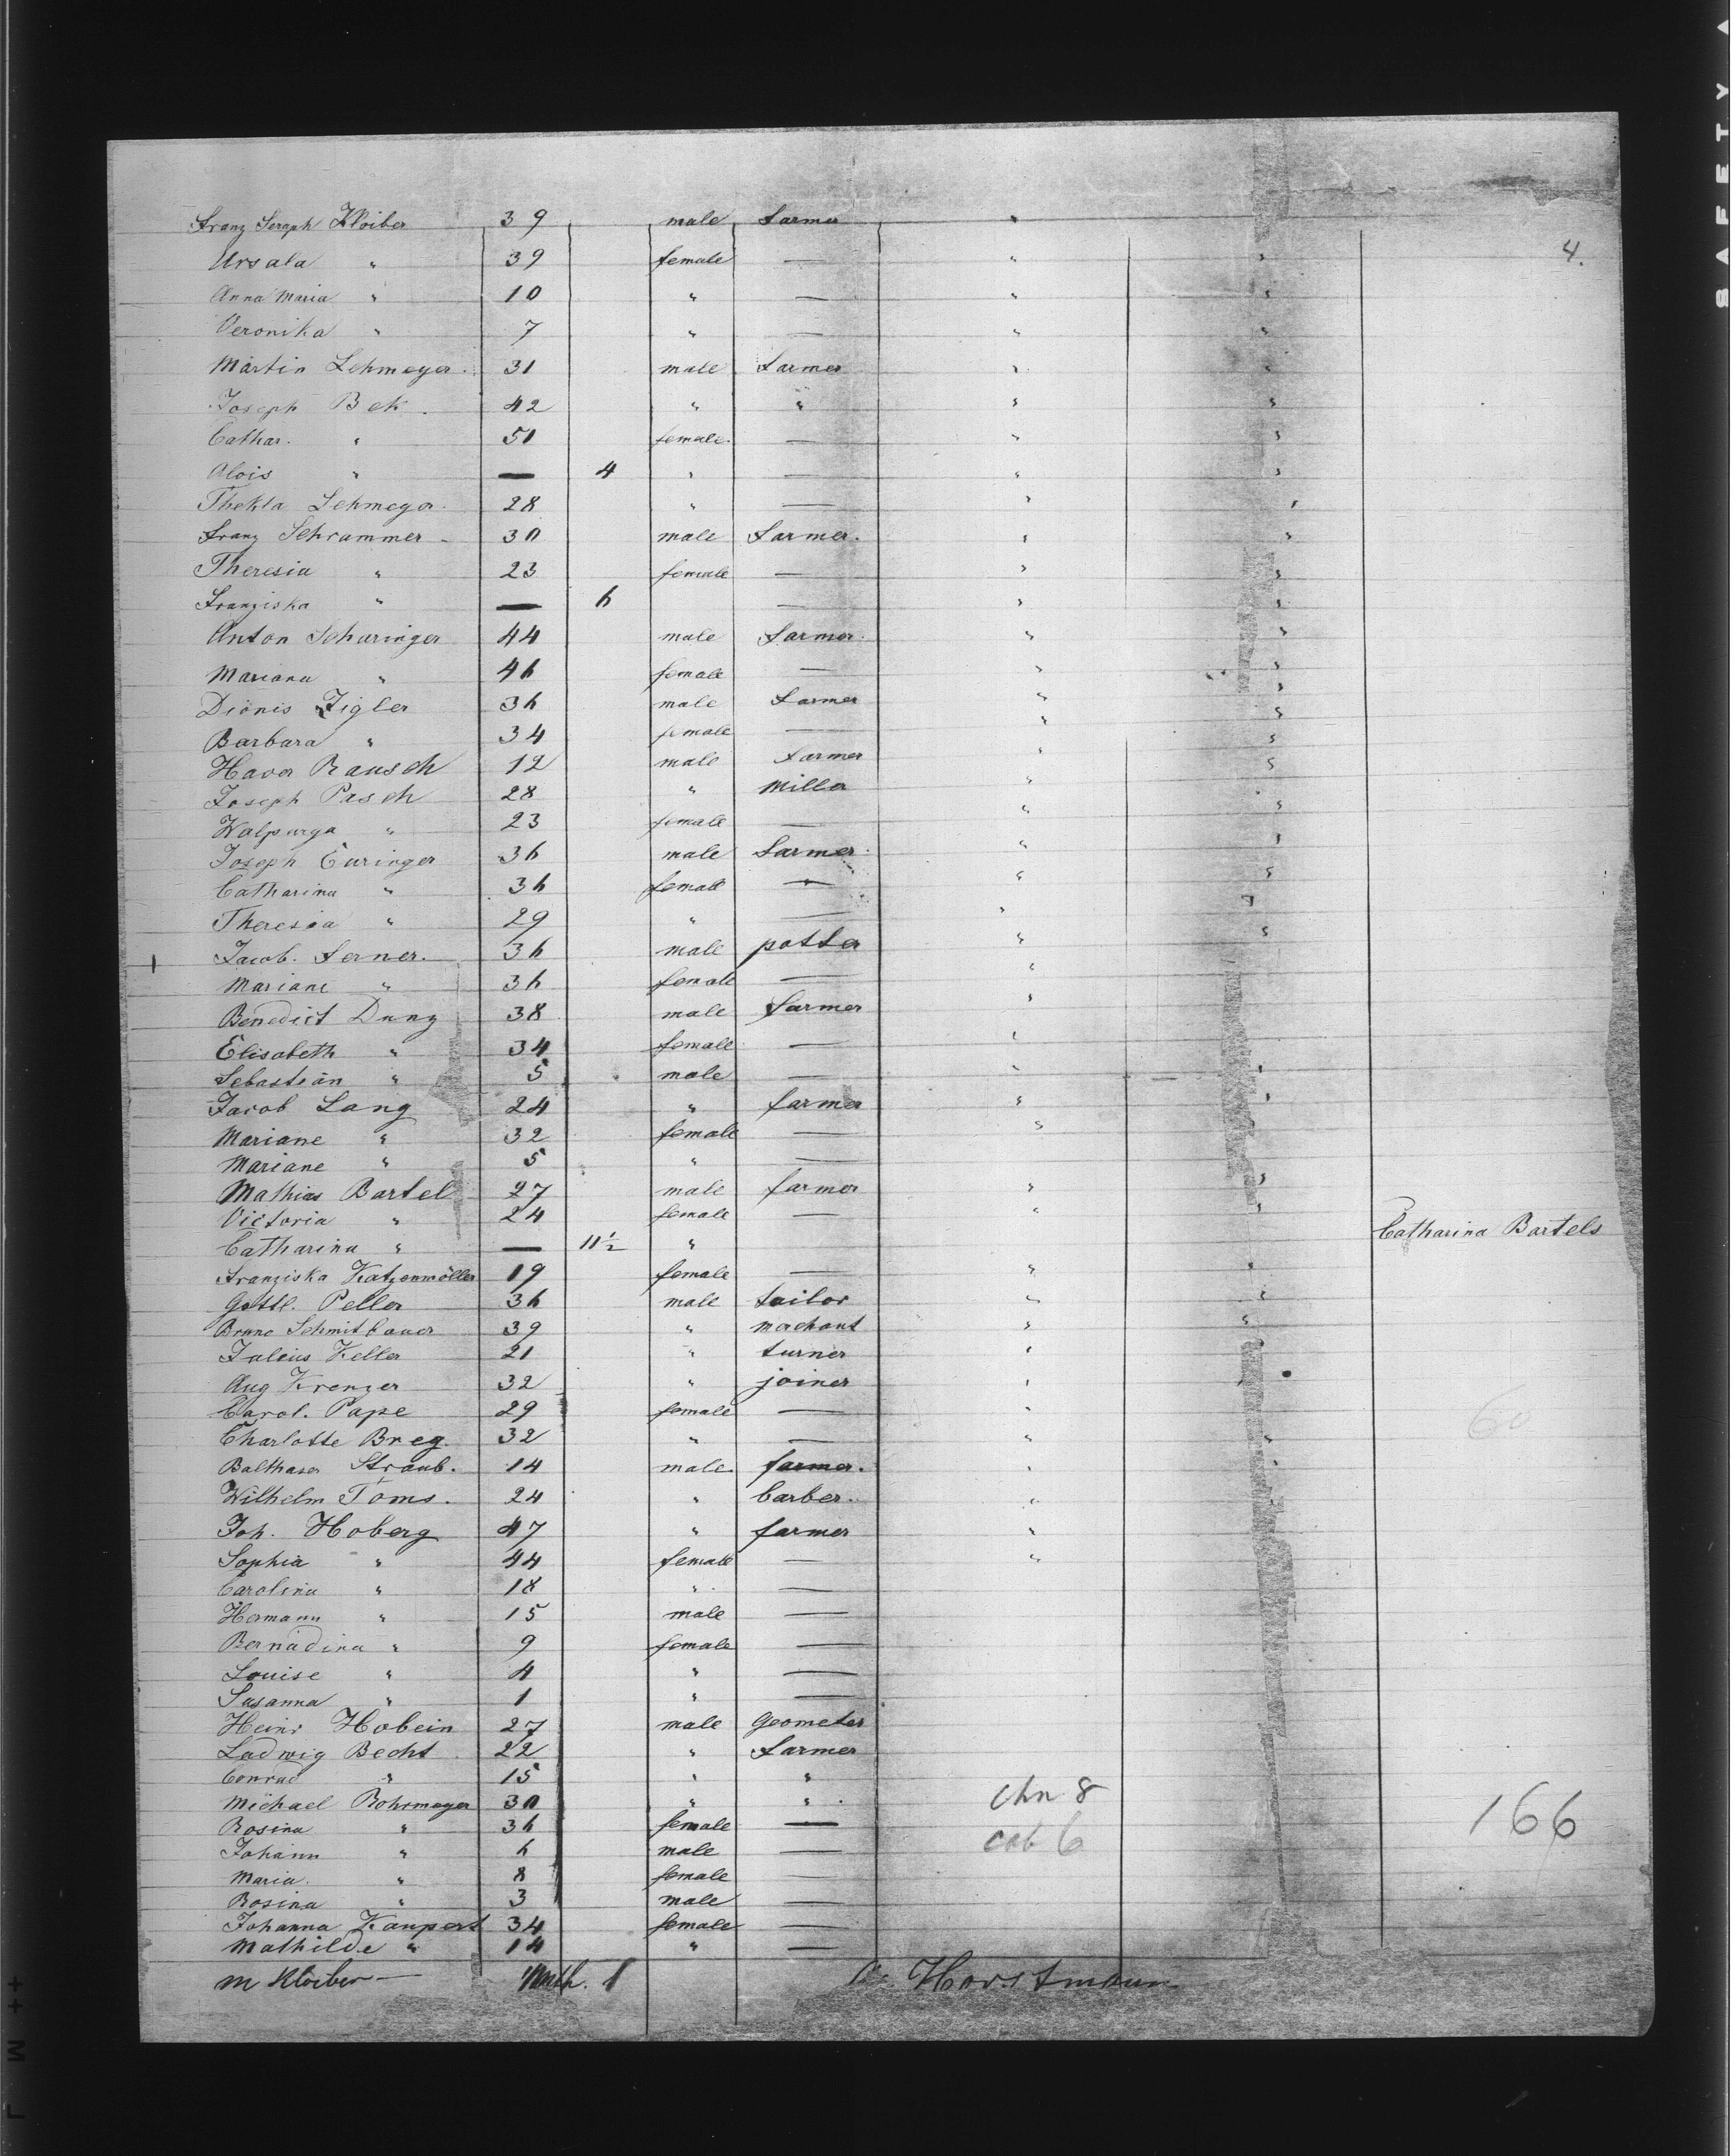 4.
Franz Seraph Kloiber 39 male farmer "
Ursala " 39 female — " "
Anna Maria " 10 " — " "
Veronika " 7 " — " "
Martin Lehmeyer. 31 male farmer " "
Joseph Bek. 42 " " " "
Cathar. " 50 female. — " "
Alois " — 4 " — " "
Thekla Lehmeyer. 28 " — " "
Franz Schrammer 30 male farmer. " "
Theresia " 23 female — " "
Franziska " — 6 — " "
Anton Scharinger 44 male farmer. " "
Mariana " 46 female — " "
Dionis Zigler 36 male farmer " "
Barbara " 34 female — " "
Xaver Rausch 12 male farmer " "
Joseph Pasch 28 " miller " "
Walpurga " 23 female — " "
Joseph Euringer 36 male farmer. " "
Catharina " 36 female — " "
Theresia " 29 " — " "
Jacob. Ferner. 36 male potter " "
Mariane " 36 female — "
Benedict Dunz 38 male farmer "
Elisabeth " 34 female — "
Sebastian " 5 male — " "
Jacob Lang 24 " farmer " "
Mariane " 32 female — "
Mariane " 5 " —
Mathias Bartel 27 male farmer " "
Victoria " 24 female — " "
Catharina " — 11½ " Catharina Bartels
Franziska Katzenmöller 19 female — " "
Gottl. Peller 36 male tailor " "
Bruno Schmitbauer 39 " merchant " "
Julius Keller 21 " turner " "
Aug Krenzer 32 " joiner "
Carol. Pape 29 female — "
Charlotte Breg. 32 " — " "
Balthaser Straub. 14 male farmer. " "
Wilhelm Toms. 24 " barber. "
Joh. Hoberg 47 " farmer "
Sophia " 44 female — "
Carolina " 18 " —
Hermann " 15 male —
Bernadina " 9 female —
Louise " 4 " —
Susanna " 1 " —
Heinr Hobein 27 male Geometer
Ludwig Becht 22 " farmer
Conrad " 15 " "
Michael Rohrmayer 30 " " chn 8
Rosina " 36 female — cab 6 166
Johann " 6 male —
Maria. " 8 female —
Rosina " 3 male —
Johanna Kaupert 34 female —
Mathilde " 14 " —
M Kloiber — Mnth. 1 Horstmann
60
SAFETY